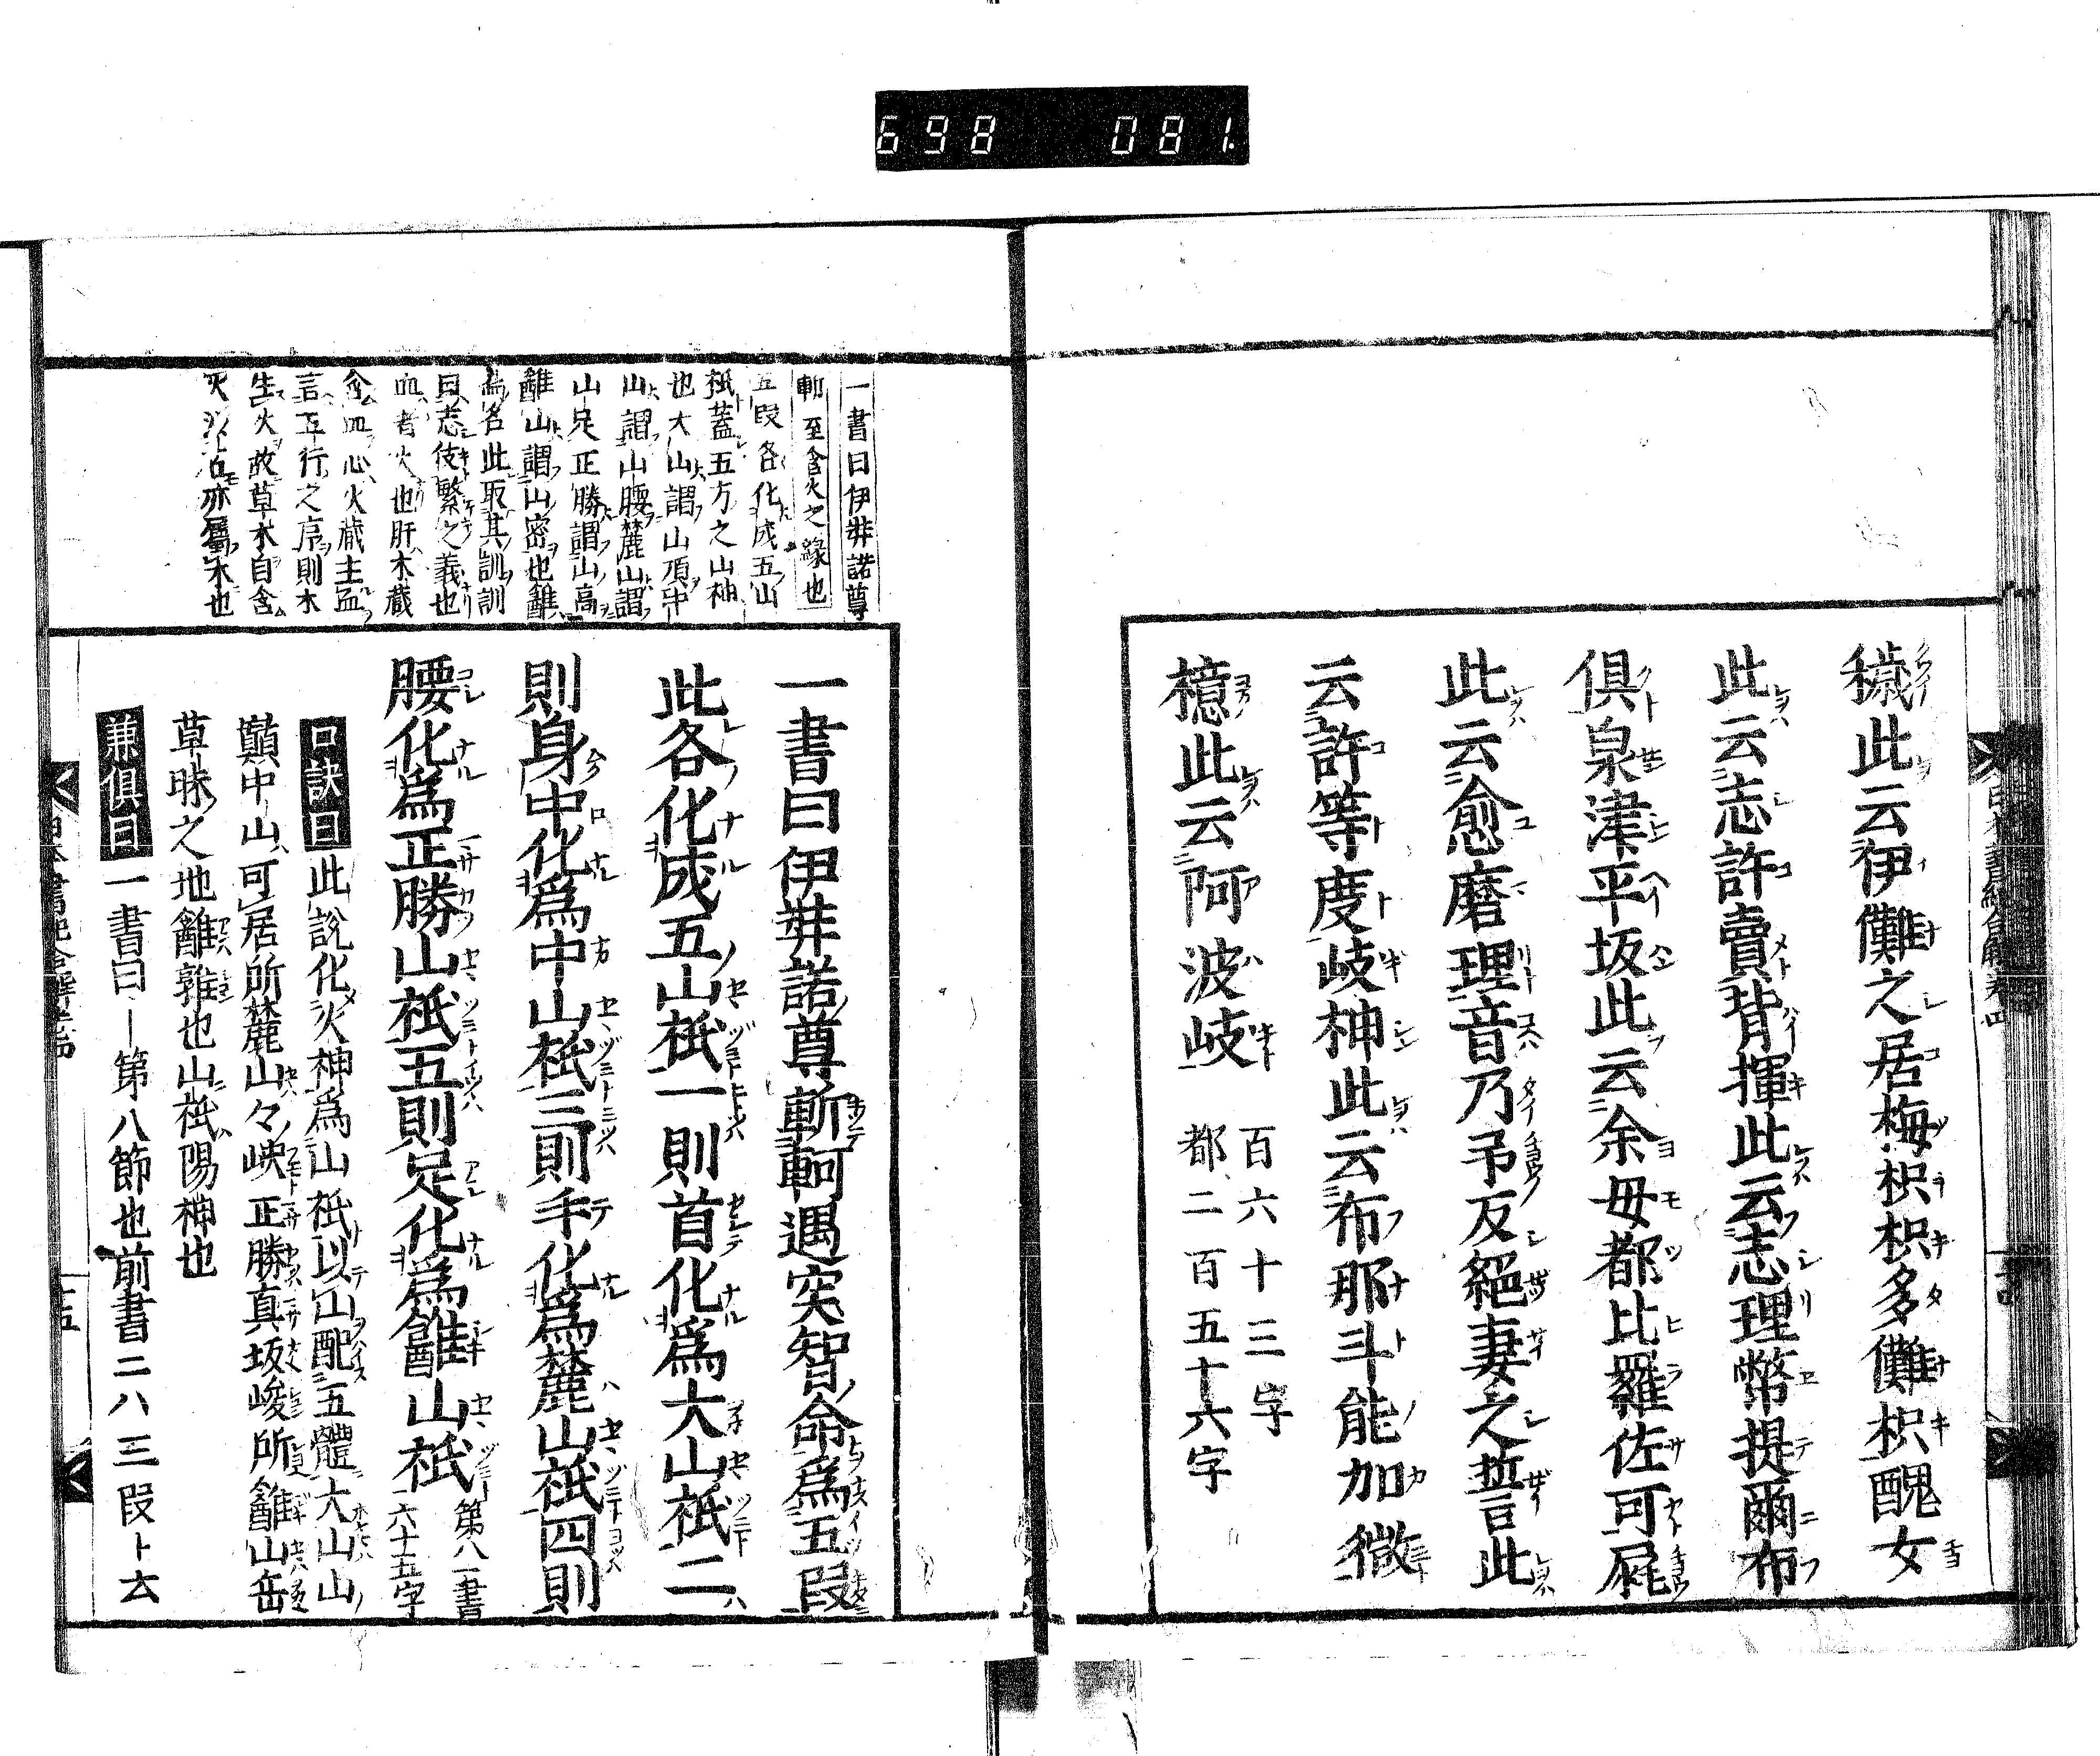 698 081.
穢此云伊儺之居梅枳枳多儺枳醜女
此云志許賣背揮此云志理幣提爾布
俱泉津平坂此云余母都比羅佐可㞙
此云愈磨理音乃予反絕妻之誓此
云許等度岐神此云布那斗能加微
檍此云阿波岐
百六十三字
都二百五十六字
一書曰伊弉諾尊
斬至含火之緣也
五段各化成五山
祇蓋五方之山神
也大山謂山頂中
山謂山腰麓山謂
山足正勝謂山高
䨄山謂山密也䨄
為名此取其訓訓
曰志伎繁之義也
血者火也肝木藏
含血心火藏主血
言五行之序則木
生火故草木自含
火沙石亦屬木也
一書曰伊弉諾尊斬軻遇突智命爲五段
此各化成五山祇一則首化爲大山祇二
則身中化爲中山祇三則手化爲麓山祇四則
腰化爲正勝山祇五則足化爲䨄山祇
第八一書
六十五字
口訣曰此說化火神爲山祇以山配五體大山山
巓中山可居所麓山々峽正勝真坂峻所䨄山岳
草昧之地䨄雜也山祇陽神也
兼俱曰一書曰第八節也前書二八三段ト云